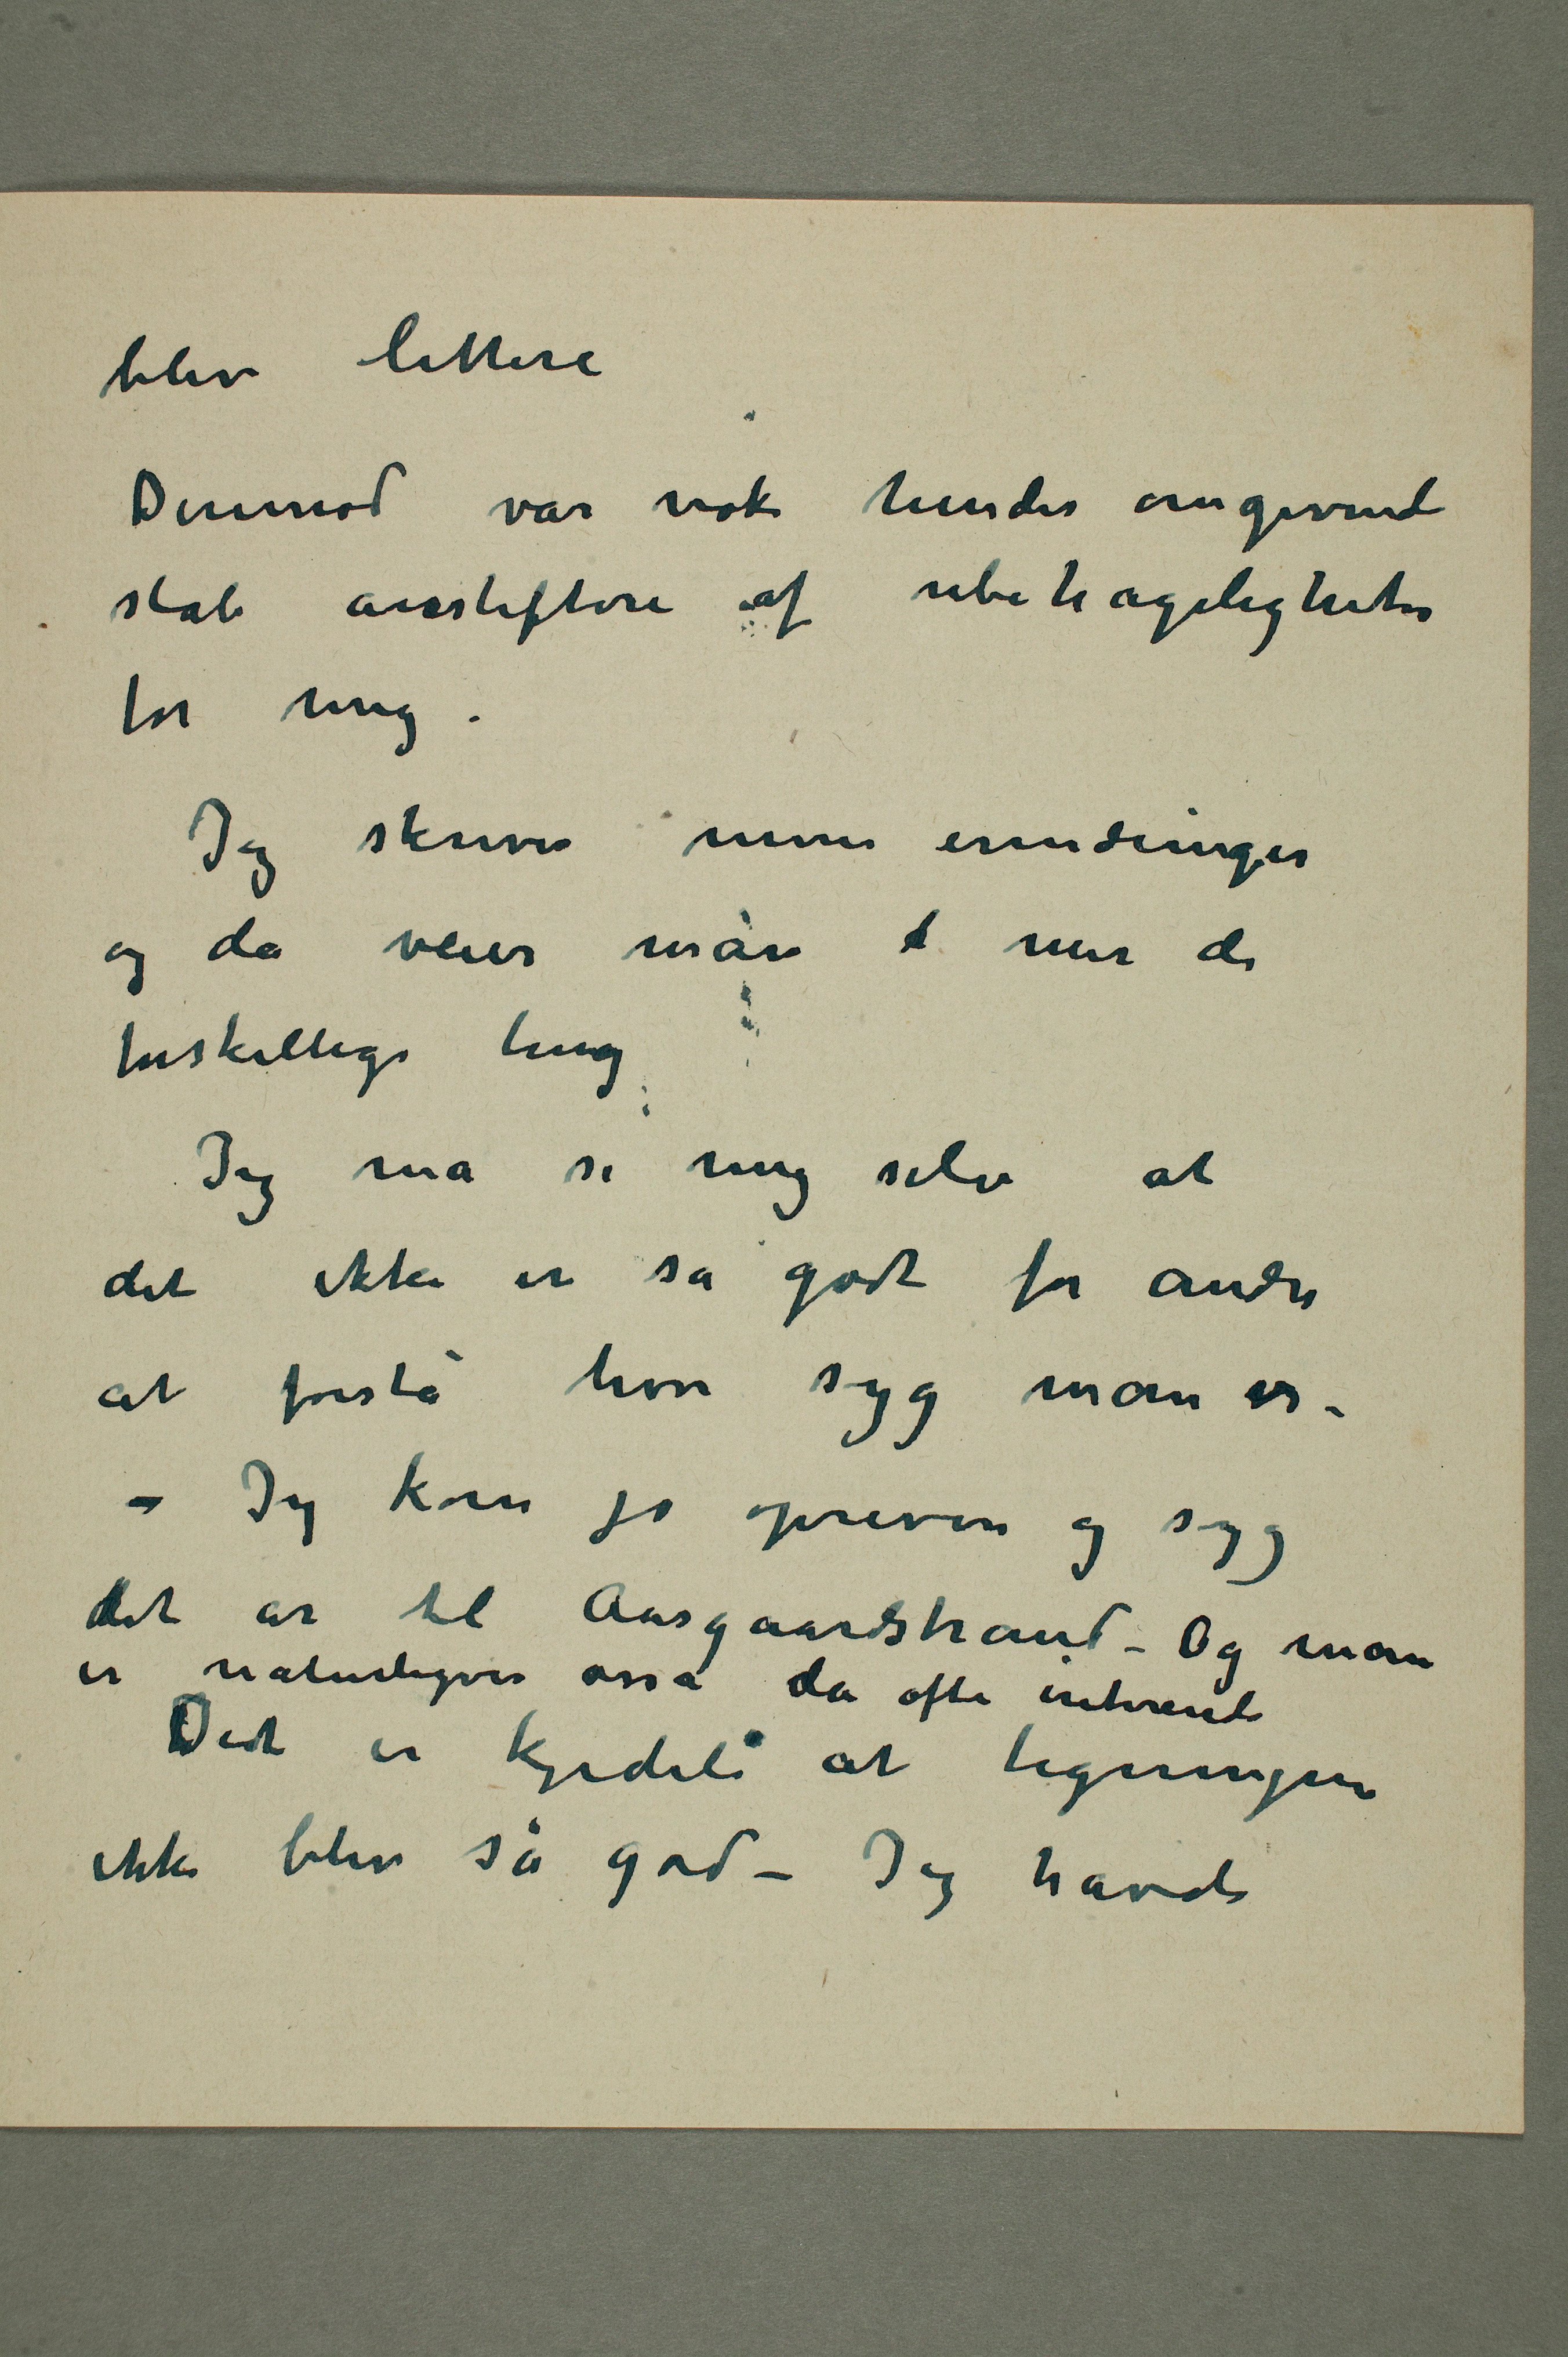 blev lettere
Derimod var nok hendes omgivende
stab anstiftere af ubehageligheter
for mig.
Jeg skriver mine erindringer
og da veier man mer de
forskellige ting
Jeg må se mig selv at
det ikke er så godt for andre
at forstå hvor syg man er –
– Jeg kom jo opreven og syg
det år til Aasgaardstrand – Og man
er naturligvis osså da ofte
Det er kjedeli at tegningen
ikke blev så god – Jeg havde